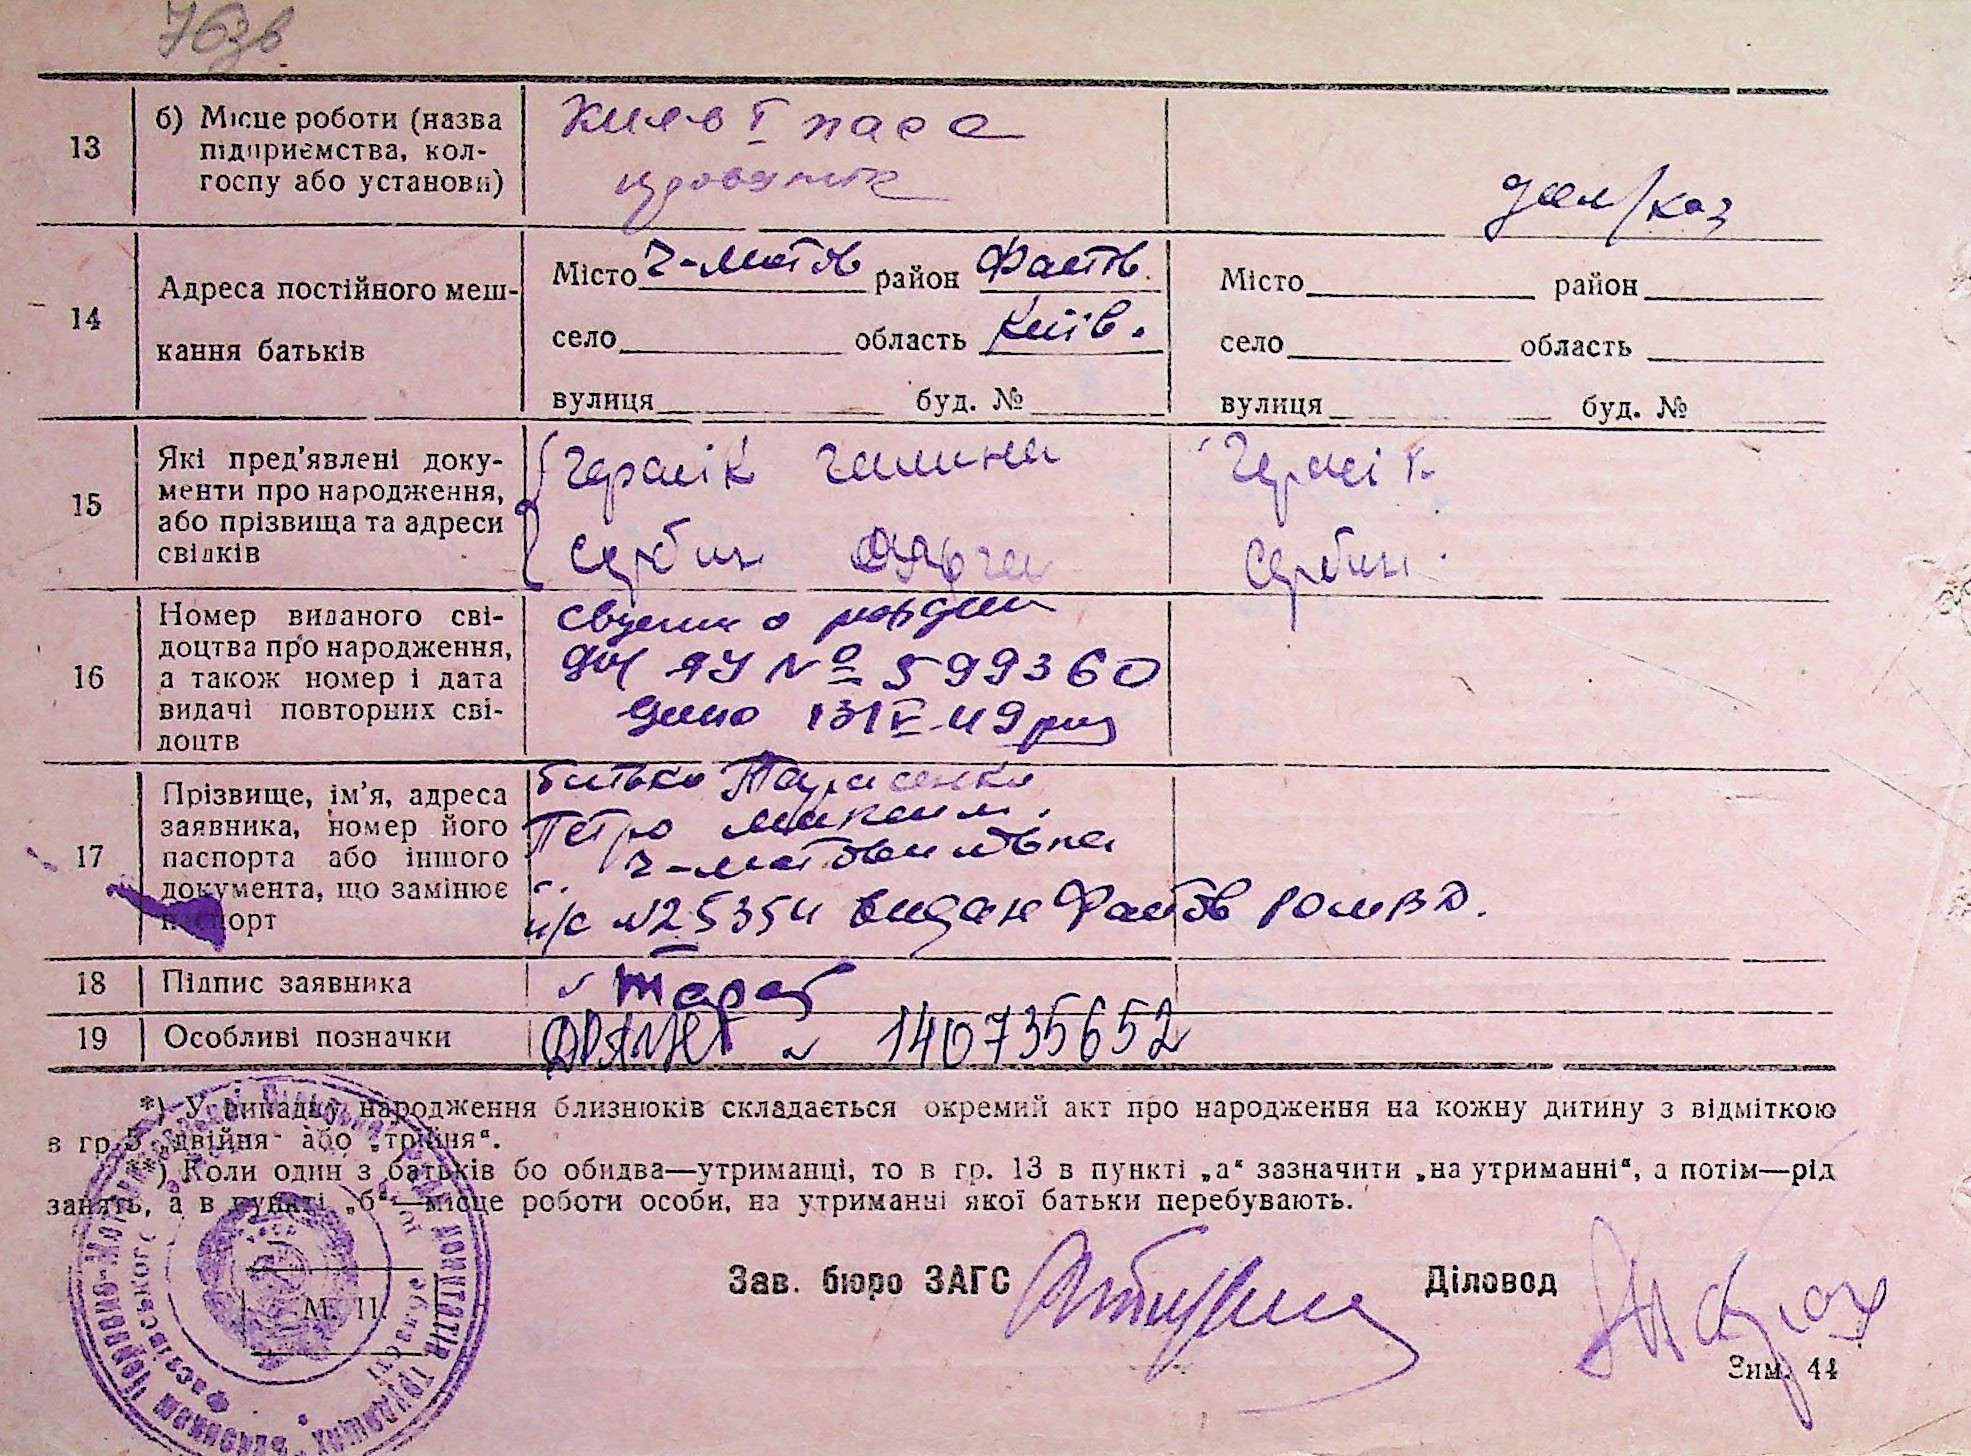 76зв
13
б) Місце роботи (назва
підприємства, кол-
госпу або установи)
Київ I пасс
14
Адреса постійного меш-
кання батьків
Місто Ч-Мотов район Фастів.
село область Київ.
вулиця буд. №
Місто район
село область
вулиця буд. №
15
Які пред'явлені доку-
менти про народження,
або прізвища та адреси
свідків
Галина
Сербин Ольга
Сербин
16
Номер виданого сві-
доцтва про народження,
а також номер і дата
видачі повторних сві-
доцтв
№ 599360
49
17
Прізвище, ім'я, адреса
заявника, номер його
паспорта або іншого
документа, що замінює
паспорт
батько Тарасенко
Петро Максим.
Ч-Мотовилівка
п/с № 25354 видан Фастов РОМВД.
18
Підпис заявника
Тарас
19
Особливі позначки
140735652
*) У випадку народження близнюків складається окремий акт про народження на кожну дитину з відміткою
в гр. 5 „двійня" або „трійня".
**) Коли один з батьків бо обидва—утриманці, то в гр. 13 в пункті „а" зазначити „на утриманні", а потім—рід
занять, а в пункті „б"—місце роботи особи, на утриманні якої батьки перебувають.
М. П.
Зав. бюро ЗАГС
Діловод
Зим. 44